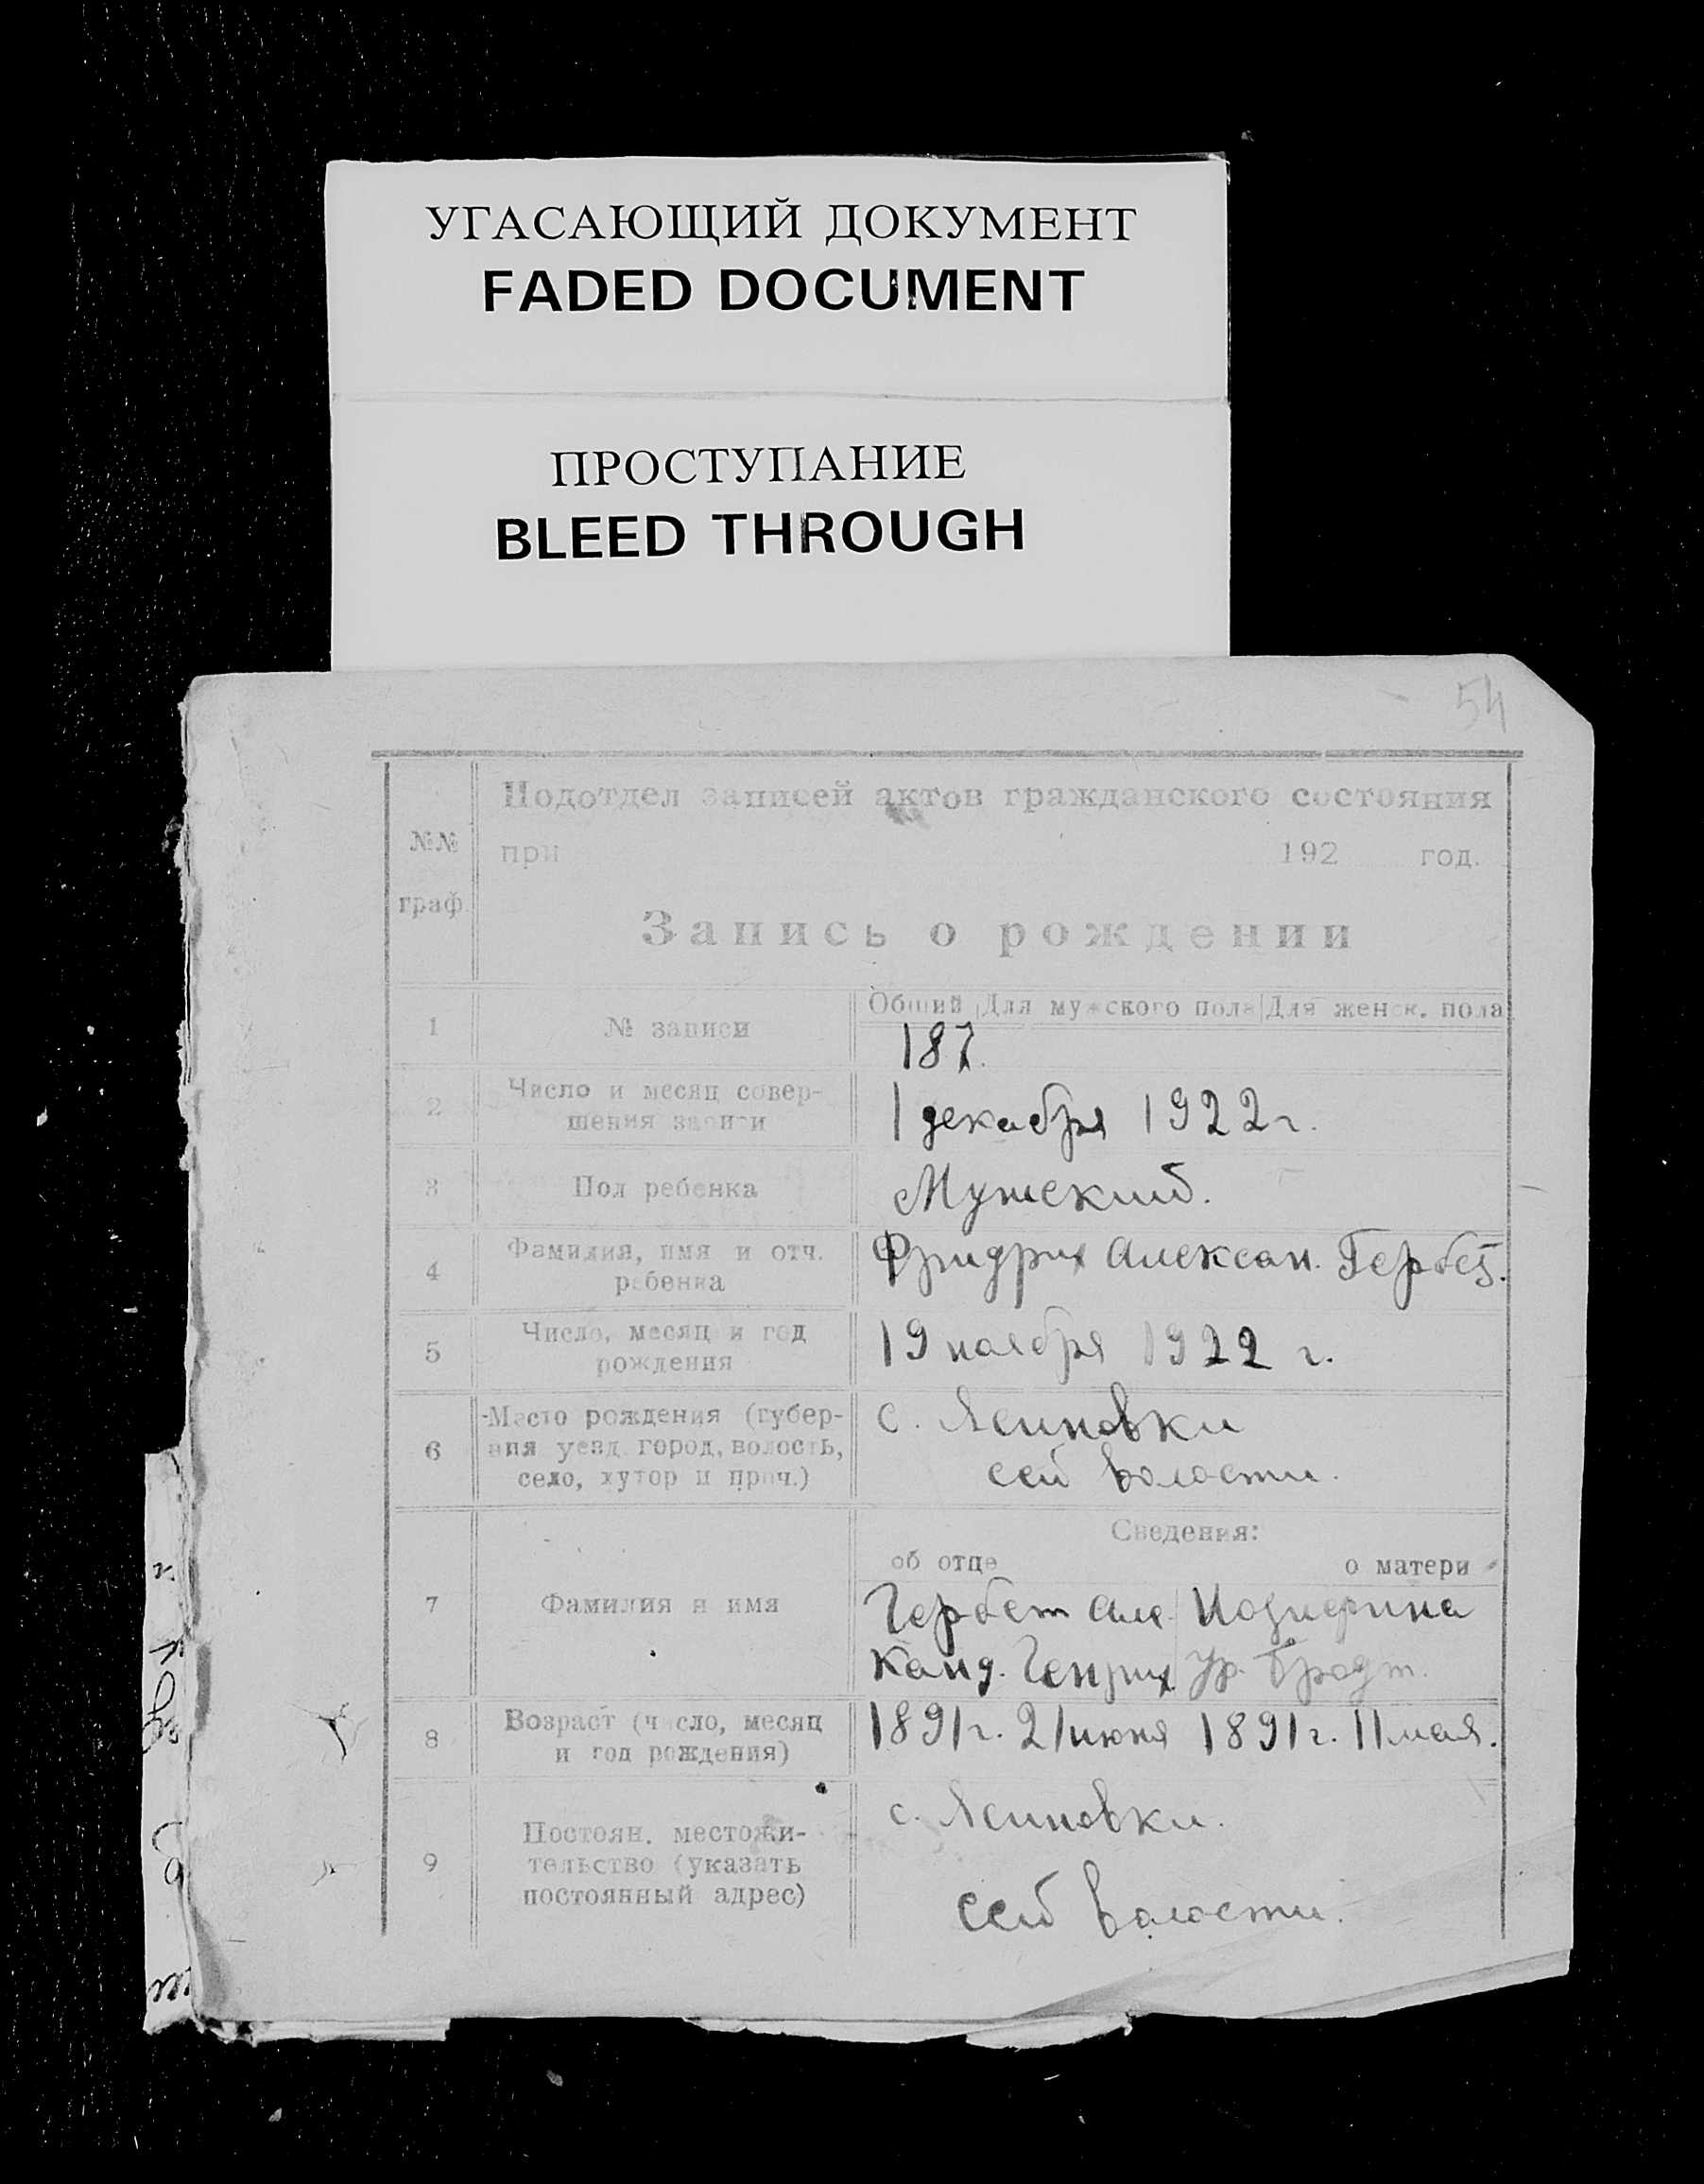 УГАСАЮЩИЙ ДОКУМЕНТ
FADED DOCUMENT
ПРОСТУПАНИЕ
BLEED THROUGH
54
Подотдел записей актов гражданского состояния
№№ граф.
при 192 год.
Запись о рождении
Общий Для мужского пола Для женск. пола
1 № записи 187.
2 Число и месяц совер-
шения записи 1 декабря 1922 г.
3 Пол ребенка Мужский.
4 Фамилия, имя и отч.
ребенка Фридрих Алексан. Гербет.
5 Число, месяц и год
рождения 19 ноября 1922 г.
6 Место рождения (губер-
ния уезд, город, волость,
село, хутор и проч.) с. Ясиновки
сей волости.
Сведения:
об отце о матери
7 Фамилия и имя Гербет Але
Канд. Генрих Ур. Бродт.
8 Возраст (число, месяц
и год рождения) 1891 г. 21 июня 1891 г. 11 мая.
9 Постоян. местожи-
тельство (указать
постоянный адрес) с. Ясиновки.
сей волости.